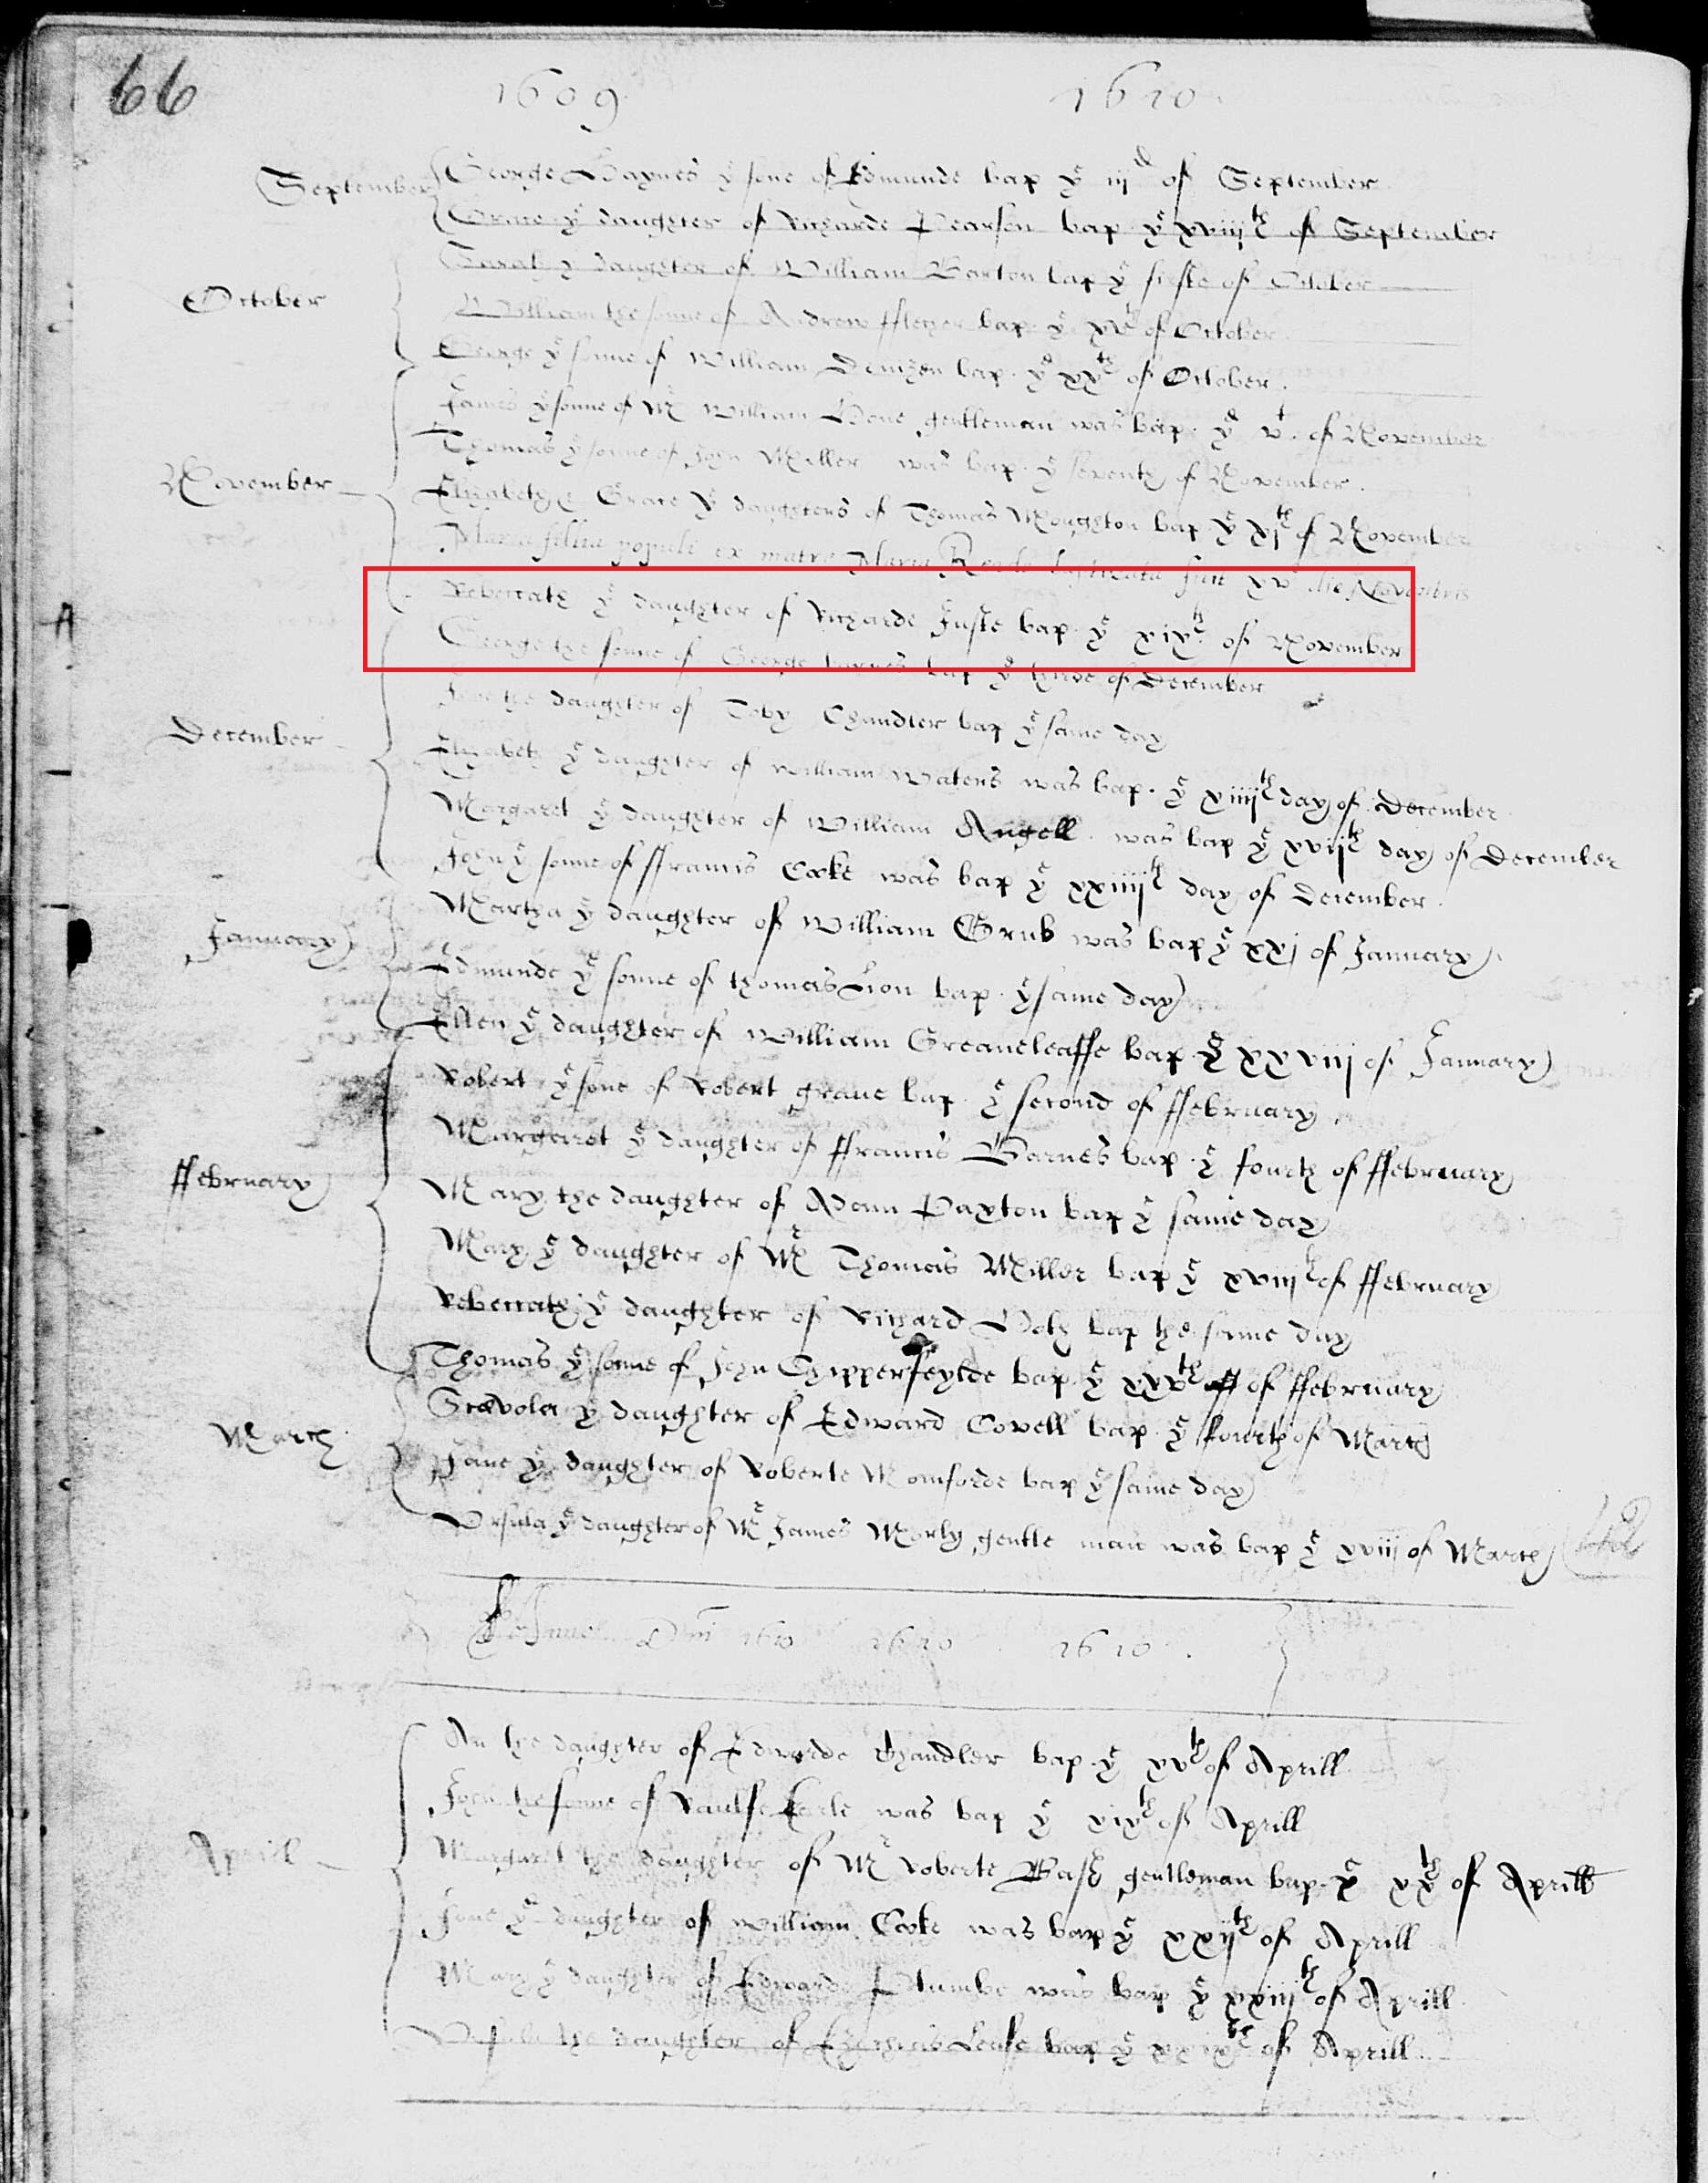 66
1609
1610
September
George Baynes ye sone of Edmunde bap ye iijd of September
Grace ye daughter of Richarde Pearson bap ye xviijth of September
Sarah ye daughter of William Barton bap ye firste of October
October
William the sonne of Andrew ffletcher bap ye xvth of October
George ye sonne of William Denizen bap. ye xxth of October.
James ye sonne of Mr William Done gentleman was bap. ye vt. of November
Thomas ye sonne of John Miller was bap. ye seventh of November.
November
Elizabeth & Grace ye daughters of Thomas Moughton bap. ye xjth of November
Maria filia populi ex matre Maria Reade baptizata fuit xvo die Novembris
Rebeccath ye daughter of Richarde Juste bap. ye xixth of November
George the sonne of George baynes bap ye thirde of December
Jone the daughter of Toby Chandler bap ye same day
December
Elizabeth ye daughter of william Waters was bap. ye xiiijth day of December
Margaret ye daughter of William Angell was bap ye xvijth day of December
John ye sonne of ffrancis Cooke was bap ye xxiiijth day of December.
Martha ye daughter of William Grub was bap ye xxj of January.
January
Edmunde ye sonne of thomas Lion bap. ye same day
Ellen ye daughter of William Greaneleaffe bap. ye xxviij of January
Robert ye sone of Robert greane bap. ye second of ffebruary.
Margaret ye daughter of ffrancis Barnes bap. ye fourth of ffebruary
ffebruary
Mary the daughter of Adam Paxton bap ye same day
Mary ye daughter of Mr Thomas Miller bap ye xviijth of ffebruary
Rebeccath ye daughter of Richard Hoth bap the same day
Thomas ye sonne of John Chipperfeylde bap ye xxvth ff of ffebruary
Scævola ye daughter of Edward Covell bap. ye fourth of March
March
Jane ye daughter of Roberte Momforde bap ye same day
Ursula ye daughter of Mr James Morly gentle man was bap ye xviij of March
Anno Dm 1610 1610 1610.
An the daughter of Edwarde Chandler bap. ye xvth of Aprill
John the sonne of Raulfe Earle was bap ye xixth of Aprill
Aprill
Margaret the daughter of Mr Roberte Bash gentleman bap. ye xxth of Aprill
Jone ye daughter of William Cooke was bap ye xxijth of Aprill
Mary ye daughter of Edwarde Plumbe was bap ye xxiijth of Aprill
Ursula the daughter of Leafe bap ye xxixth of Aprill